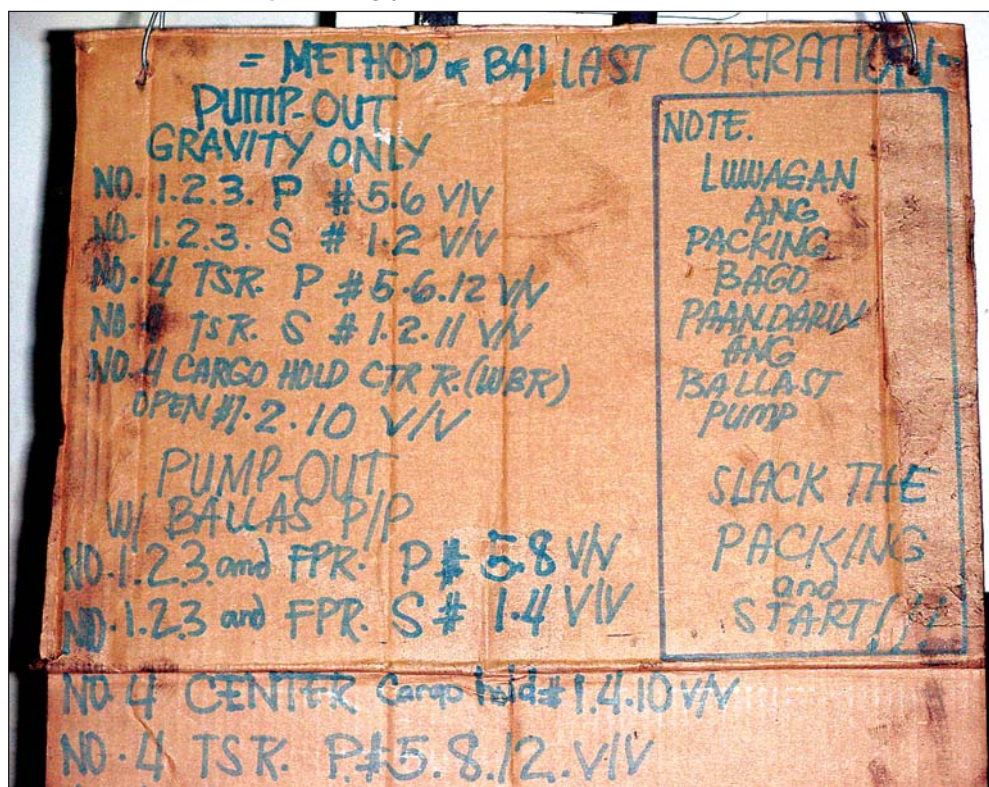 = METHOD OF BALLAST OPERATION =
PUMP-OUT
GRAVITY ONLY
NO. 1.2.3. P #5.6 V/V
NO. 1.2.3. S # 1.2 V/V
NO. 4 TSTK. P #5.6.12 V/V
NO. 4 TSTK. S # 1.2.11 V/V
NO. 4 CARGO HOLD CTR TK. (WBTK)
OPEN #1.2.10 V/V
PUMP-OUT
W/ BALLAS P/P
NO. 1.2.3. and FPTK. P # 5.8 V/V
NO. 1.2.3 and FPTK. S # 1.4 V/V
NO. 4 CENTER Cargo hold # 1.4.10 V/V
NO. 4 TSTK. P.#5.8.12. V/V
NOTE.
LUWAGAN
ANG
PACKING
BAGO
PAANDARIN
ANG
BALLAST
PUMP
SLACK THE
PACKING
and
START!!!